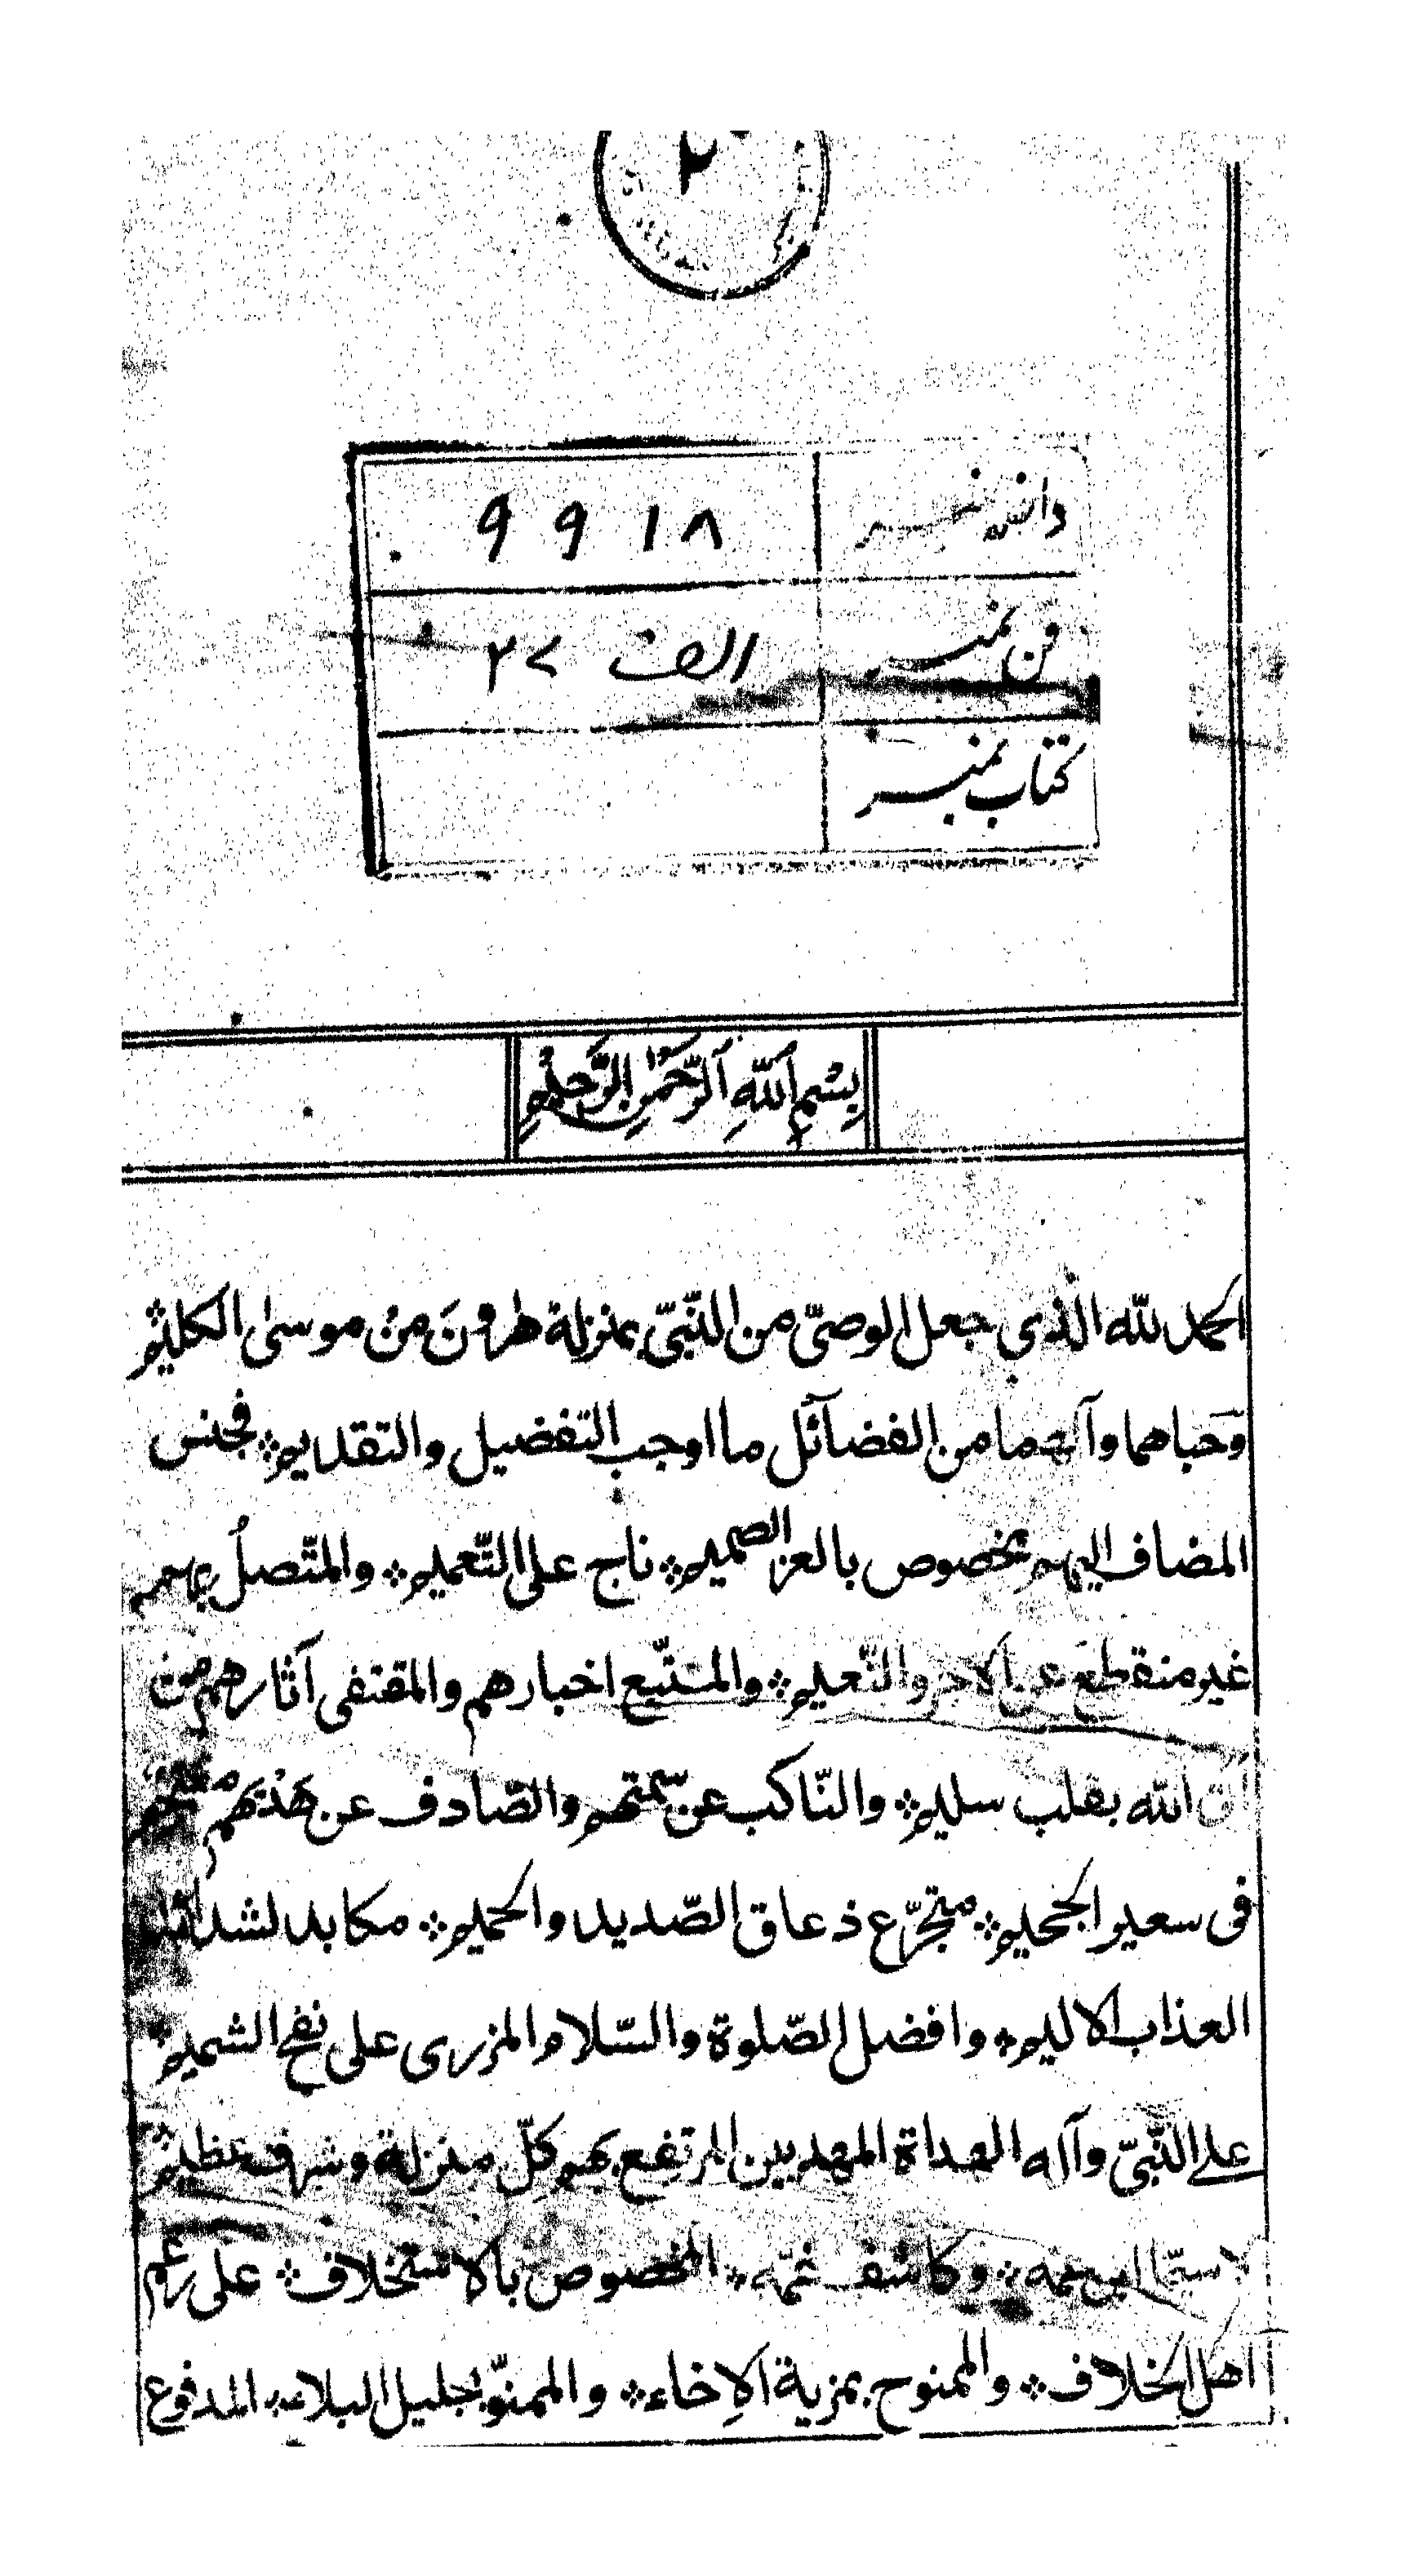 ۲
داخله نمبر ۹۹۱۸
فن نمبر الف ۲۷
کتاب نمبر
بِسْمِ اللّٰهِ الرَّحْمٰنِ الرَّحِيْمِ
الحمد للّه الذي جعل الوصيّ من النّبيّ بمنزلة هٰرونَ منْ موسىٰ الكليم ۞
وَحباهما وآلهما من الفضائل ما اوجب التفضيل والتقديم ۞ فجنس
المضاف اليهم مخصوص بالعز الصميم ۞ ناج على التّعميم ۞ والمتّصلُ بهم
غير منقطع عن الاجر والنّعيم ۞ والمتتبّع اخبارهم والمقتفى آثارهم من
اتى اللّه بقلب سليم ۞ والنّاكب عن سمتهم والصّادف عن هَدْيهم مقتحم
فى سعير الجحيم ۞ متجرّع ذعاق الصّديد والحميم ۞ مكابد لشدائد
العذاب الاليم ۞ وافضل الصّلوة والسّلام المزرى على نفح الشميم ۞
على النّبيّ وآله الهداة المهديين المرتفع بهم كلّ منزلة وشرف عظيم ۞
لاسيّما ابن عمه ۞ وكاشف غمّه ۞ المخصوص بالاستخلاف ۞ على رغم
اهل الخلاف ۞ والممنوح بمزية الاِخاء ۞ والممنوّ بجليل البلاء ۞ المدفوع